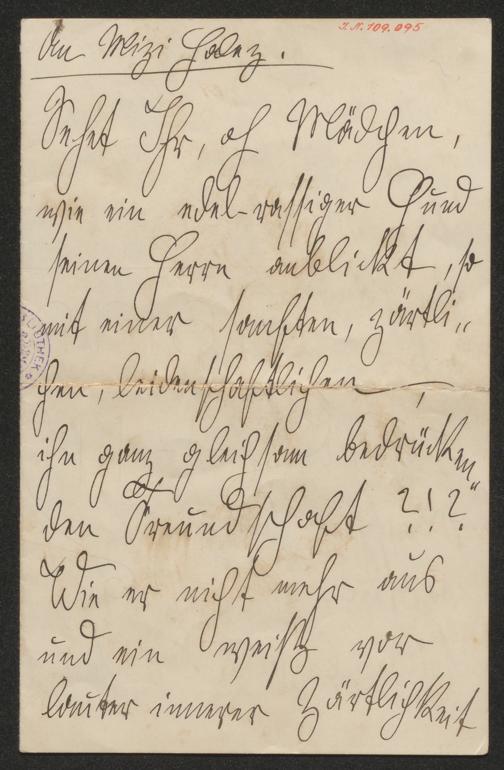 An Mizi Holez.
I.N. 109.095
Sehet Ihr, oh Mädchen,
wie ein edel-rassiger Hund
seinen Herrn anblickt, so
mit einer sanften, zärtli„
chen, leidenschaftlichen —,
ihn ganz gleichsam bedrücken„
den Freundschaft ?!?
Wie er nicht mehr aus
und ein weiß vor
lauter innerer Zärtlichkeit